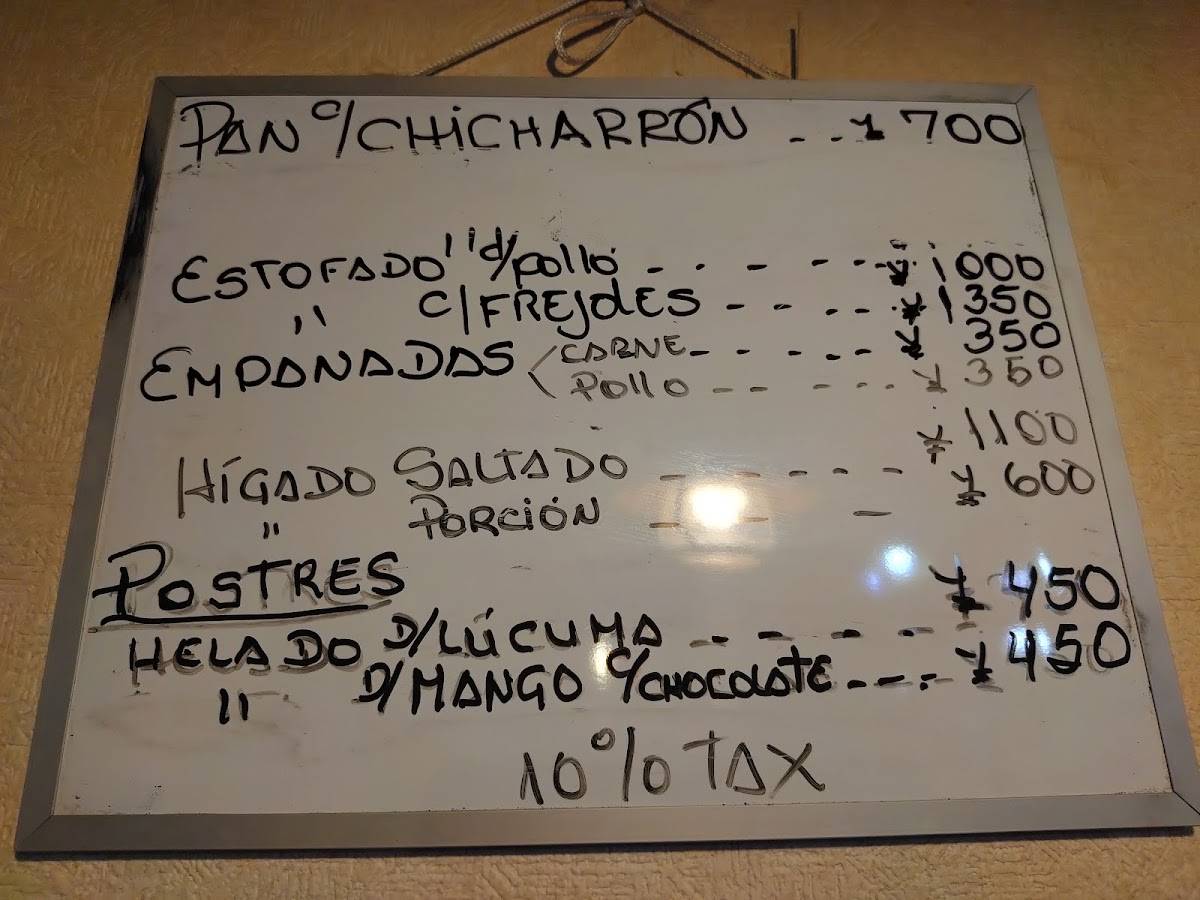 PAN C/CHICHARRÓN - - - ¥ 700
ESTOFADO '' d/pollo - - - - - - ¥ 1000
'' C/FREJOLES - - - - - ¥ 1350
EMPANADAS < CARNE - - - - - ¥ 350
POllO - - - - - ¥ 350
HÍGADO SALTADO - - - - - ¥ 1100
'' PORCIÓN - - - ¥ 600
POSTRES
HELADO D/LÚCUMA - - - - - ¥ 450
'' D/MANGO C/CHOCOLATE - - - ¥ 450
10% TAX